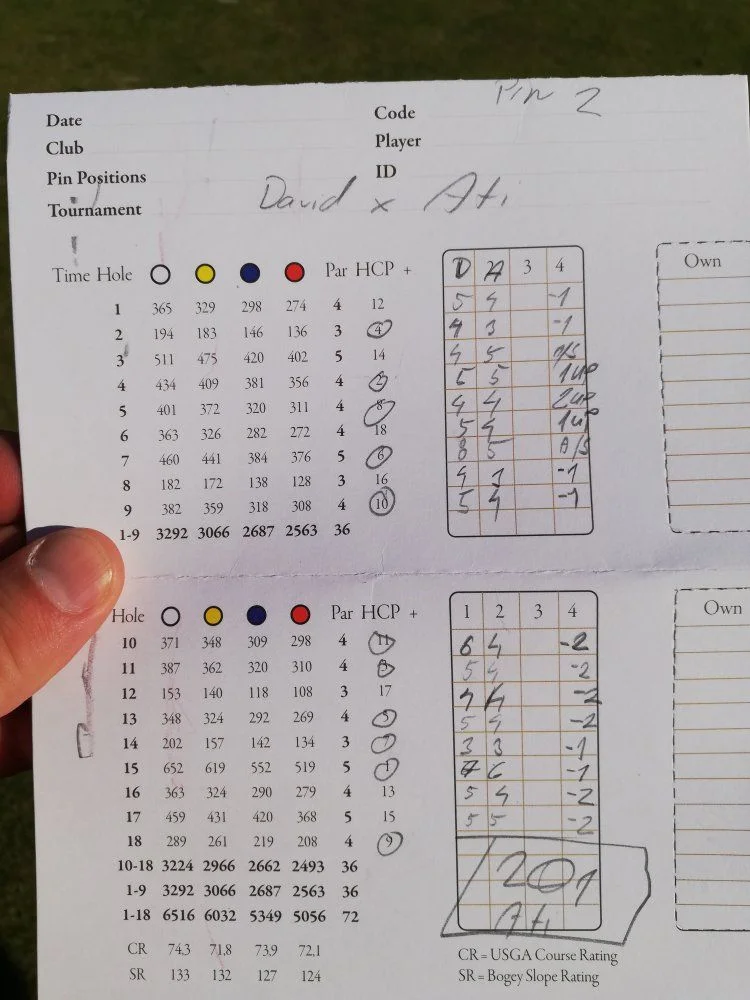 Pin 2
Date Code
Club Player
Pin Positions ID
Tournament David x Ati
Time Hole Par HCP + D A 3 4 Own
1 365 329 298 274 4 12 5 4 -1
2 194 183 146 136 3 4 4 3 -1
3 511 475 420 402 5 14 4 5 A/S
4 434 409 381 356 4 5 1up
5 401 372 320 311 4 8 4 4 2up
6 363 326 282 272 4 18 5 4 1up
7 460 441 384 376 5 6 8 5 A/S
8 182 172 138 128 3 16 4 3 -1
9 382 359 318 308 4 10 5 4 -1
1-9 3292 3066 2687 2563 36
Hole Par HCP + 1 2 3 4 Own
10 371 348 309 298 4 11 6 4 -2
11 387 362 320 310 4 3 5 4 -2
12 153 140 118 108 3 17 4 4 -2
13 348 324 292 269 4 5 5 4 -2
14 202 157 142 134 3 7 3 3 -1
15 652 619 552 519 5 1 7 6 -1
16 363 324 290 279 4 13 5 4 -2
17 459 431 420 368 5 15 5 5 -2
18 289 261 219 208 4 9
10-18 3224 2966 2662 2493 36
1-9 3292 3066 2687 2563 36
1-18 6516 6032 5349 5056 72
2@1
Ati
CR 74,3 71,8 73,9 72,1 CR = USGA Course Rating
SR 133 132 127 124 SR = Bogey Slope Rating